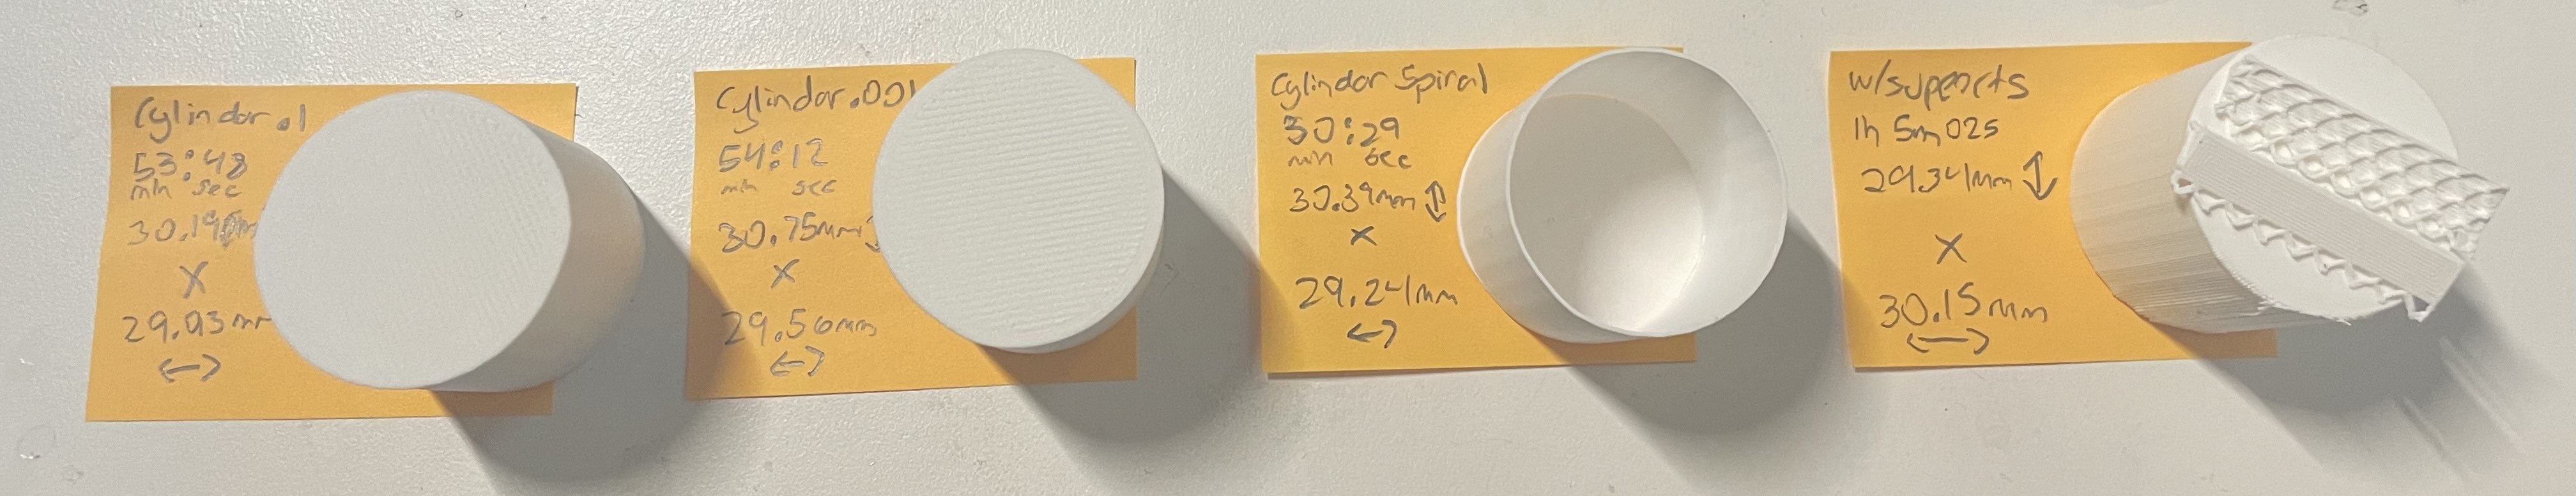 Cylindor .1
53:48
min sec
30.19
X
29.93mm
↔
Cylindor .001
54:12
min sec
30.75mm
X
29.56mm
↔
Cylindor Spiral
30:29
min sec
30.39mm ↕
X
29.24mm
↔
w/supports
1h 5m 02s
29.34mm ↕
X
30.15mm
↔